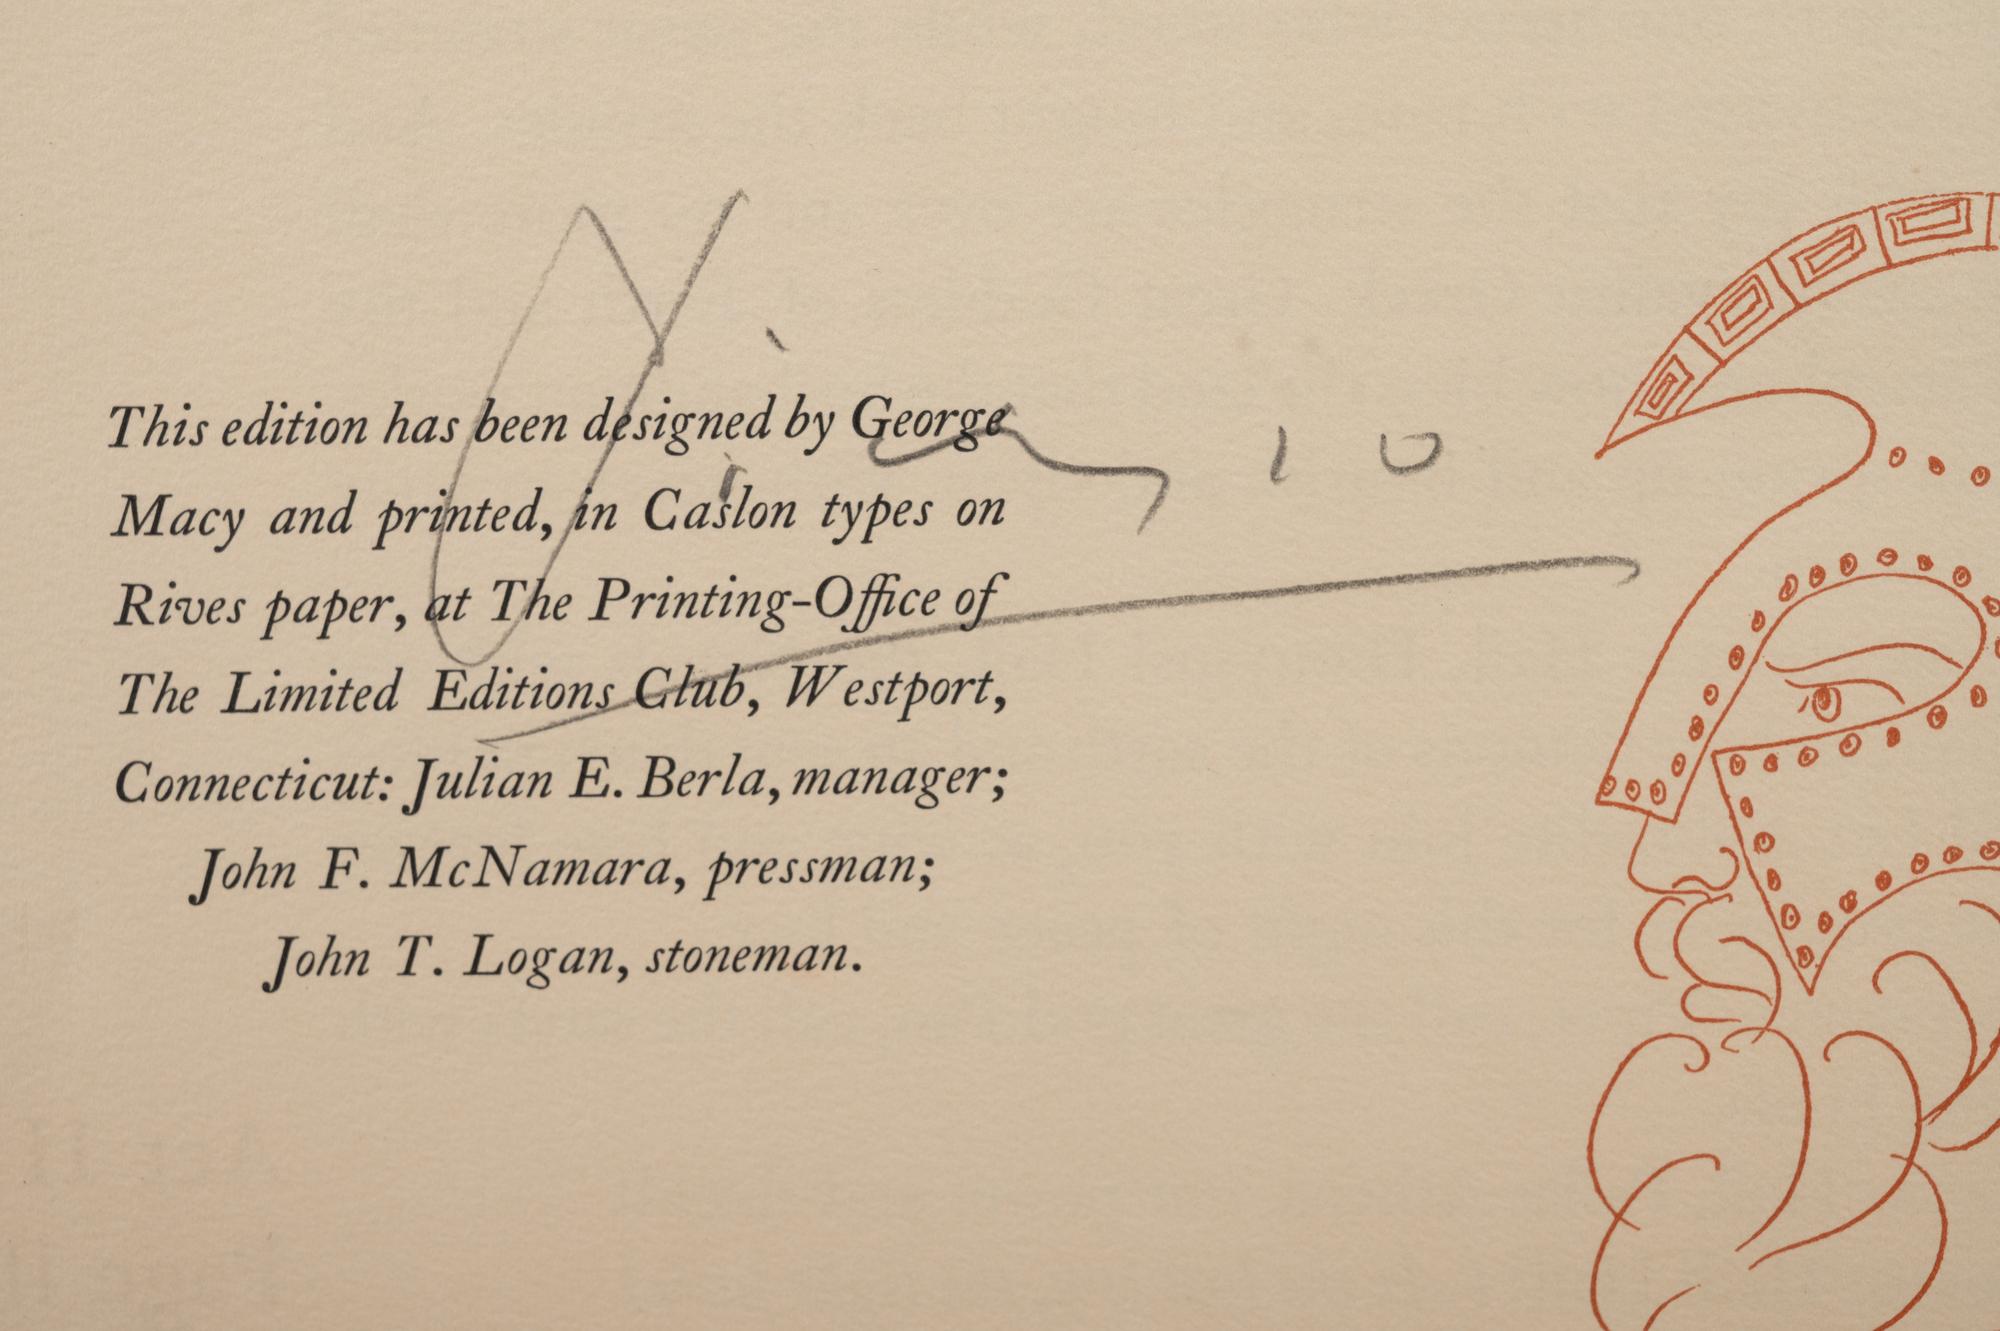 This edition has been designed by George
Macy and printed, in Caslon types on
Rives paper, at The Printing-Office of
The Limited Editions Club, Westport,
Connecticut: Julian E. Berla, manager;
John F. McNamara, pressman;
John T. Logan, stoneman.